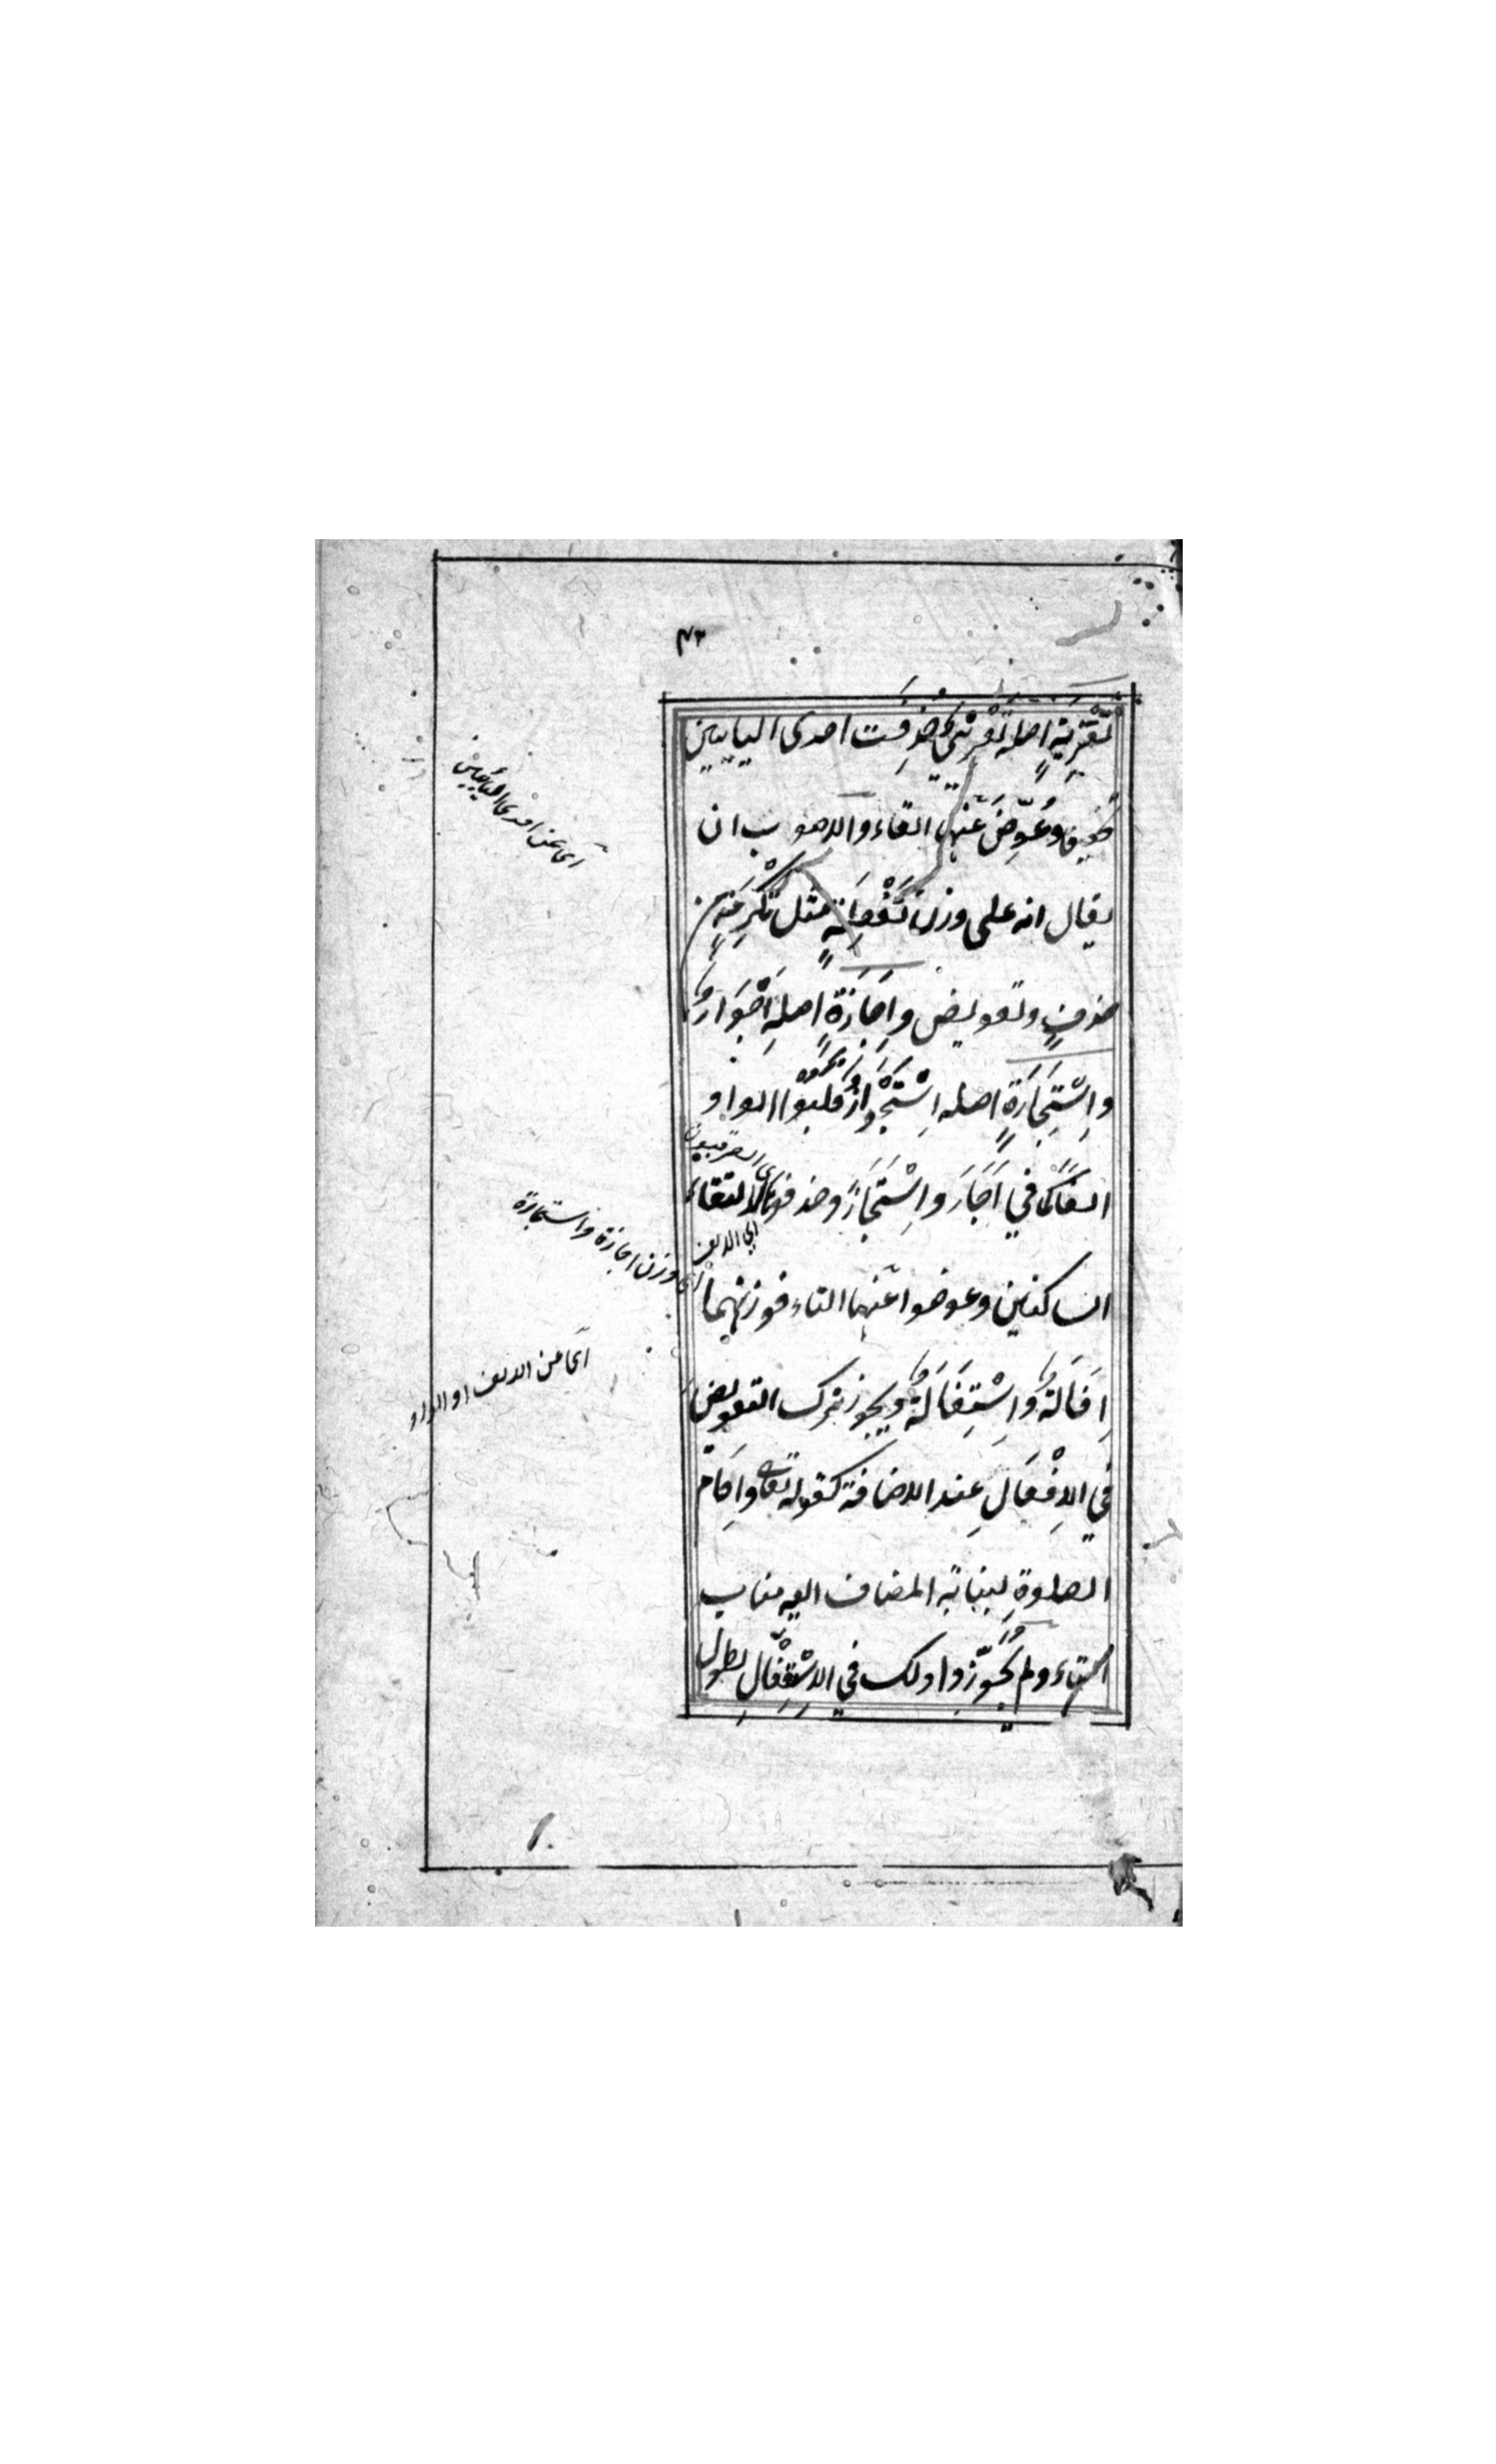 ٤٣
تَعْزِيَةٍ اصله تَعْزِيْيٌ حُذِفَت احدى اليايين
وعُوِّضَ عَنها التاء والاصوب ان
يقال انه على وزن تَفْعِلَةٍ مثل تَكْرِمَةٍ من
حذفٍ وتعويض وإِجَازَةٍ اصله إِجْوَازٌ
واِسْتِجَازَةٍ اصله اِسْتِجْوَازٌ قلبوا الواو
الفاً كما في اَجَازَ واِسْتَجَازَ وحذفوها لالتقاء
الساكنين وعوضوا عَنها التاء فوزنهما
اِفَالَةٌ واِسْتِفَالَةٌ ويجوز ترك التعويض
في الاِفْعَالِ عند الاضافة كقوله تعالى واِقَامَ
الصلوةِ لنيابة المضاف اليه مناب
التاء ولم يُجَوِّزوا ذلك في الاِسْتِفْعَالِ لطول
اى عن احدى اليايين
اى الصرفيون
اى الالف
اى وزن اجازة واستجازة
اى عن الالف او الواو